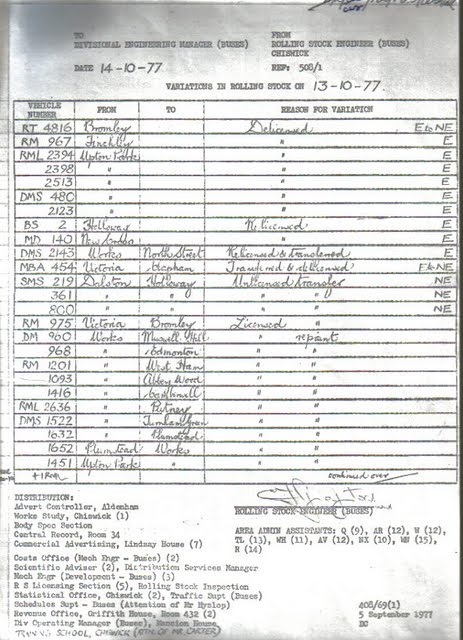 TO FROM
DIVISIONAL ENGINEERING MANAGER (BUSES) ROLLING STOCK ENGINEER (BUSES)
CHISWICK
DATE 14-10-77 REF: 508/1
VARIATIONS IN ROLLING STOCK ON 13-10-77.
VEHICLE NUMBER FROM TO REASON FOR VARIATION
RT 4816 Bromley Delicensed E to NE
RM 967 Finchley " E
RML 2394 Upton Park " E
2398 " " E
2513 " " E
DMS 480 " " E
2123 " " E
BS 2 Holloway Relicensed E
MD 140 New Cross " E
DMS 2143 Works North Street Relicensed & transferred E
MBA 454 Victoria Clapham Transferred & delicensed E to NE
SMS 219 Dalston Holloway Unlicensed transfer NE
361 " " " " NE
800 " " " " NE
RM 975 Victoria Bromley Licensed "
DM 960 Works Muswell Hill " repaint
968 " Edmonton " "
RM 1201 " West Ham " "
1093 " Abbey Wood " "
1416 " Camberwell " "
RML 2636 " Putney " "
DMS 1522 " Turnham Green " "
1632 " Plumstead " "
1652 Plumstead Works " "
1451 Upton Park " " "
+1 RML continued over
DISTRIBUTION:
Advert Controller, Aldenham ROLLING STOCK ENGINEER (BUSES)
Works Study, Chiswick (1)
Body Spec Section
Central Record, Room 34
Commercial Advertising, Lindsay House (7)
AREA ADMIN ASSISTANTS: Q (9), AR (12), W (12),
TL (13), WH (11), AV (12), NX (10), WN (15),
R (14)
Costs Office (Mech Engr - Buses) (2)
Scientific Adviser (2), Distribution Services Manager
Mech Engr (Development - Buses) (3)
R S Licensing Section (5), Rolling Stock Inspection
Statistical Office, Chiswick (2), Traffic Supt (Buses)
Schedules Supt - Buses (Attention of Mr Hyslop) 408/69(1)
Revenue Office, Griffith House, Room 432 (2) 5 September 1977
Div Operating Manager (Buses), Mansion House DC
TRAINING SCHOOL, CHISWICK (ATTN. OF MR CARTER)